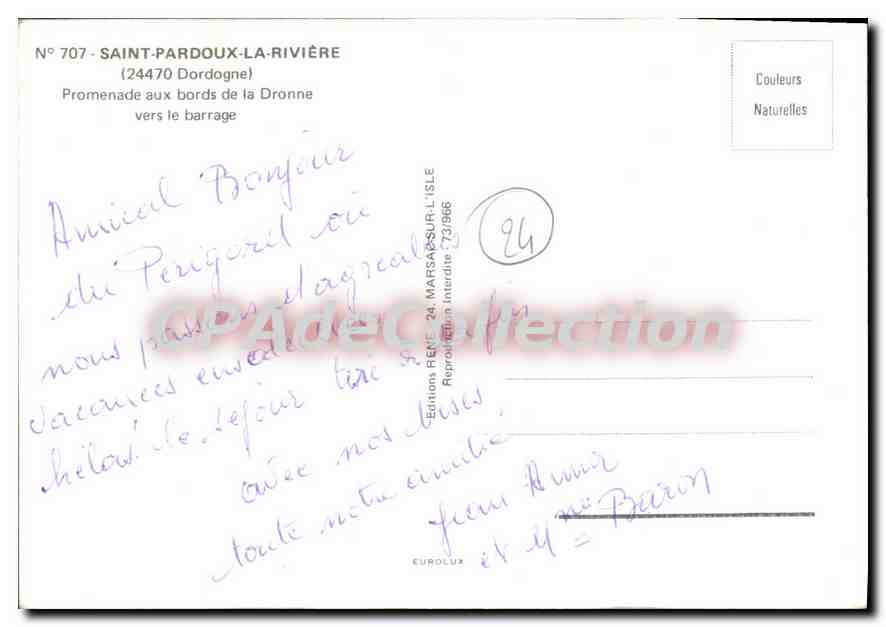 N° 707 - SAINT-PARDOUX-LA-RIVIÈRE
(24470 Dordogne)
Promenade aux bords de la Dronne
vers le barrage
Couleurs
Naturelles
Amical Bonjour
du Périgord où
nous passons d'agréables
vacances
hélas le séjour tire à sa fin
avec nos bises
toute notre amitié
Jean
et Mme Baron
24
Editions RENE - 24. MARSAC-SUR-L'ISLE
Reproduction Interdite 173/966
CPAdeCollection
EUROLUX